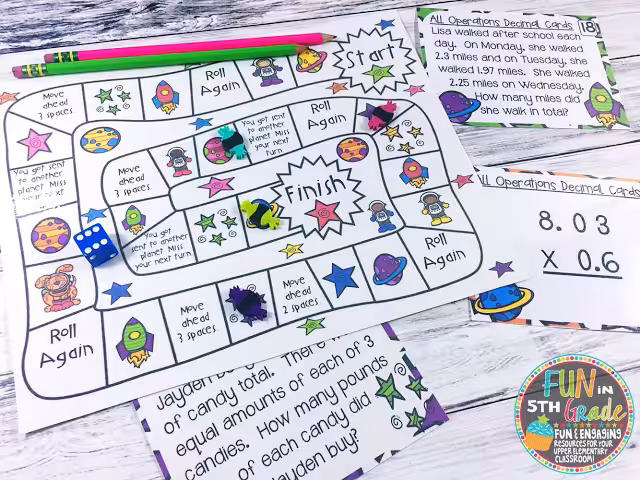 All Operations Decimal Cards
18
Lisa walked after school each
day. On Monday, she walked
2.3 miles and on Tuesday, she
walked 1.97 miles. She walked
2.25 miles on Wednesday.
How many miles did
she walk in total?
Start
Roll
Again
Move
ahead
3 spaces
You got sent
to another
planet Miss
your next
Roll
Again
Move
ahead
3 spaces
Move
ahead
2 spaces
Roll
Again
Roll
Again
You got sent
to another
planet Miss
your next
turn
Move
ahead
3 spaces
You got
sent to another
planet. Miss
your next turn
Finish
All Operations Decimal Cards
8.03
X 0.6
of candy total.
equal amounts of each of 3
candies. How many pounds
of each candy did
Jayden buy?
FUN in
5TH Grade
FUN & ENGAGING
RESOURCES FOR YOUR
UPPER ELEMENTARY
CLASSROOM!